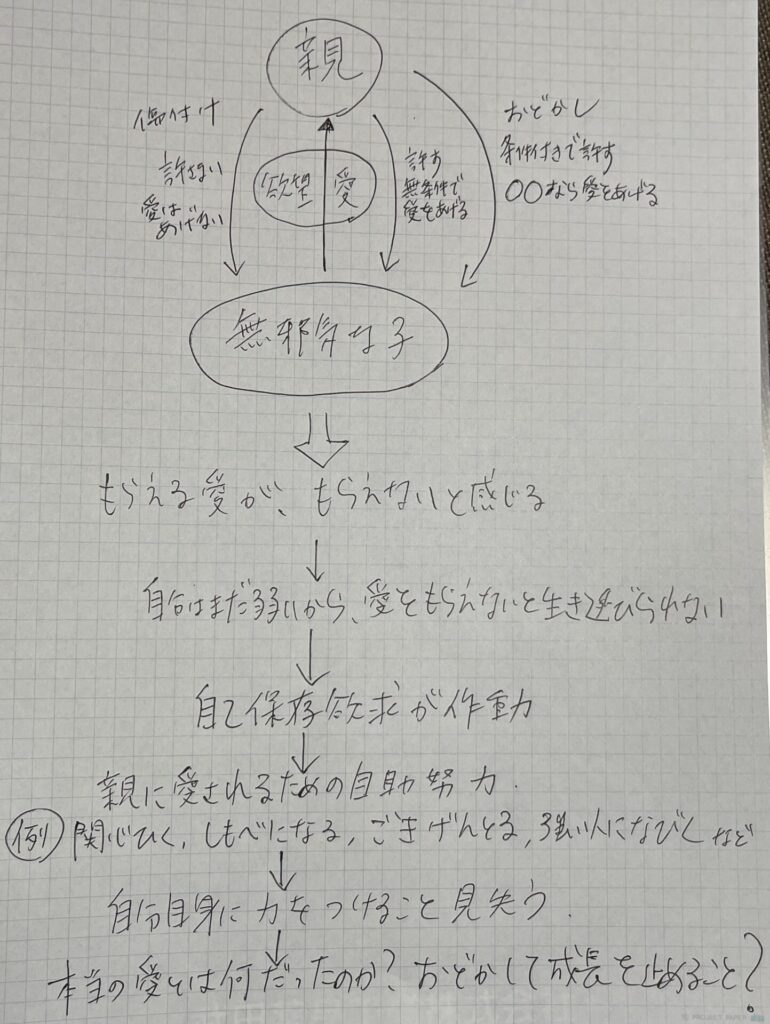 親
傷付け
許さない
愛は
あげない
欲望 愛
許す
無条件で
愛をあげる
おどかし
条件付きで許す
〇〇なら愛をあげる
無邪気な子
もらえる愛が、もらえないと感じる
自分はまだ弱いから、愛をもらえないと生き延びられない
自己保存欲求が作動
親に愛されるための自助努力.
例 関心ひく, しもべになる, ごきげんとる, 強い人になびく など
自分自身に力をつけること見失う.
本当の愛とは何だったのか? おどかして成長を止めること?
PROJECT PAPER